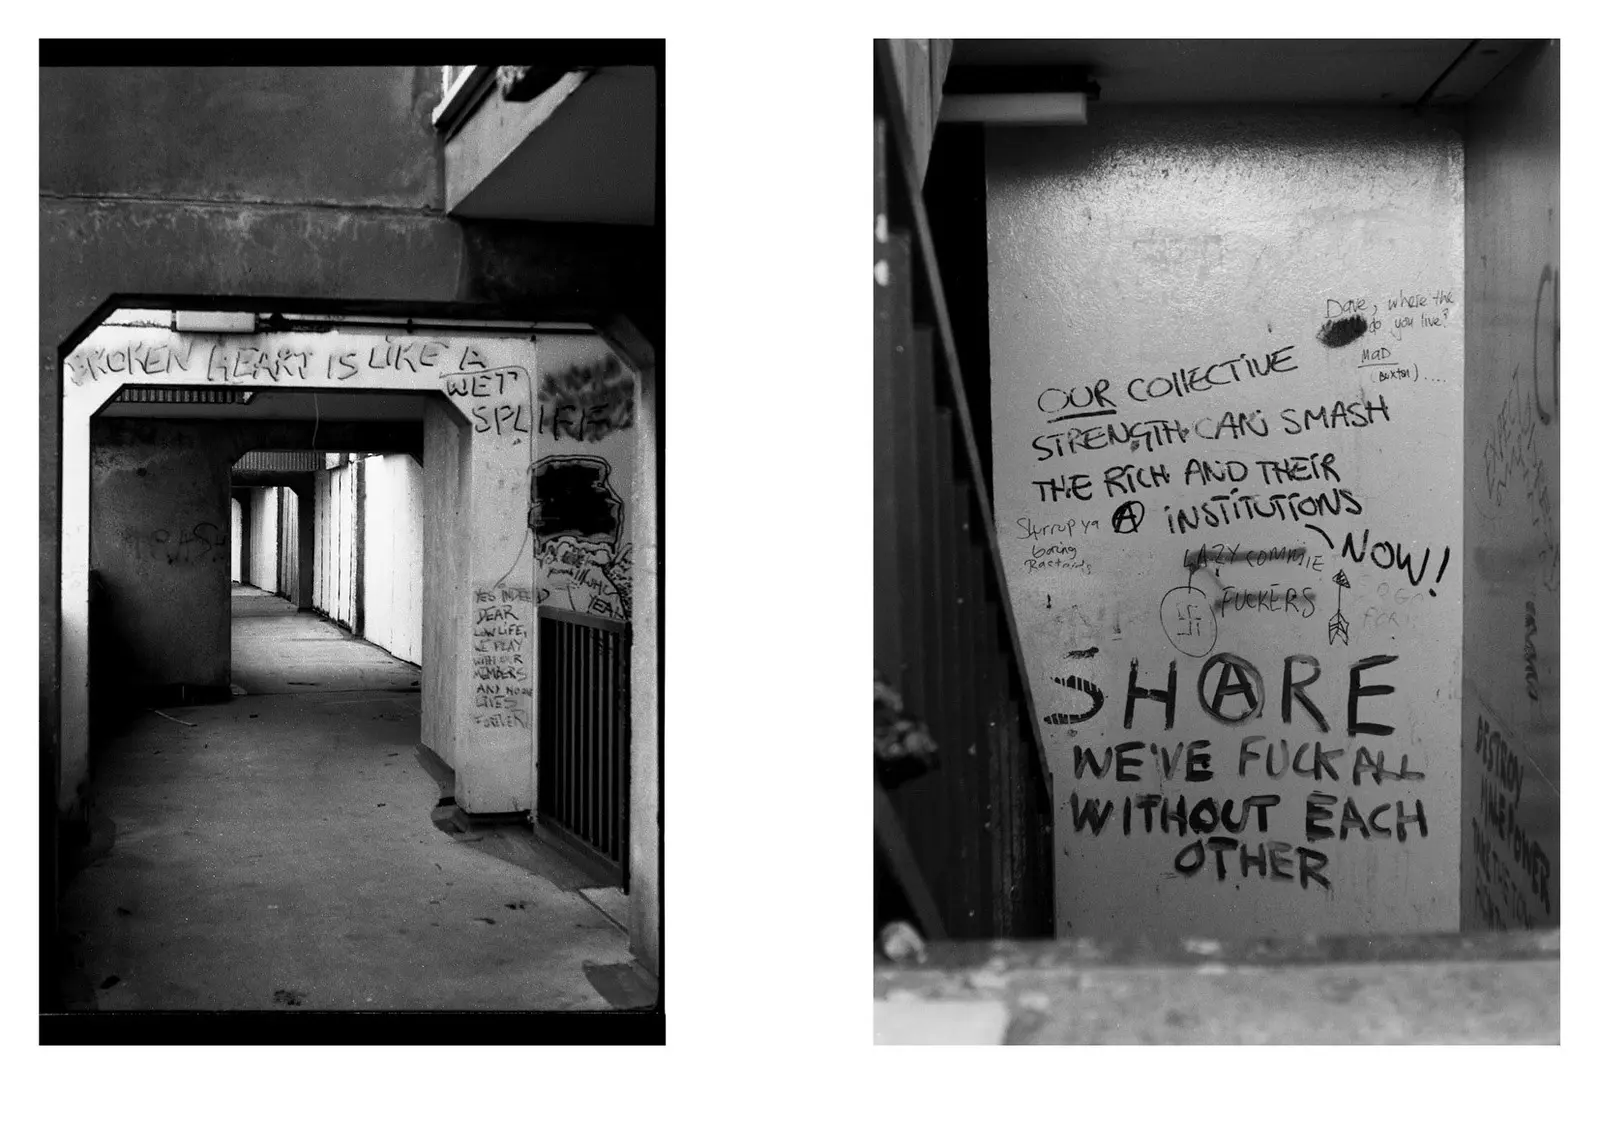 BROKEN HEART IS LIKE A
WET
SPLIFF
YES INDEED
DEAR
LOW LIFE,
WE PLAY
WITH OUR
MEMBERS
AND NO ONE
LIVES
FOREVER
YEAH
Dave, where the
do you live?
MaD
(Buxton)....
OUR COllECTIVE
STRENGTH CAN SMASH
THE RICH AND THEIR
INSTITUTIONS
NOW!
Shrrup ya
boring
Bastards
!
LAZY COMMIE
FUCKERS
SHARE
WE'VE FUCK ALL
WITHOUT EACH
OTHER
DESTROY
MALE POWER